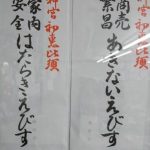 神宮 初恵比須
商売繁昌
あきないえびす
神宮 初恵比須
家内安全
はたらきえびす